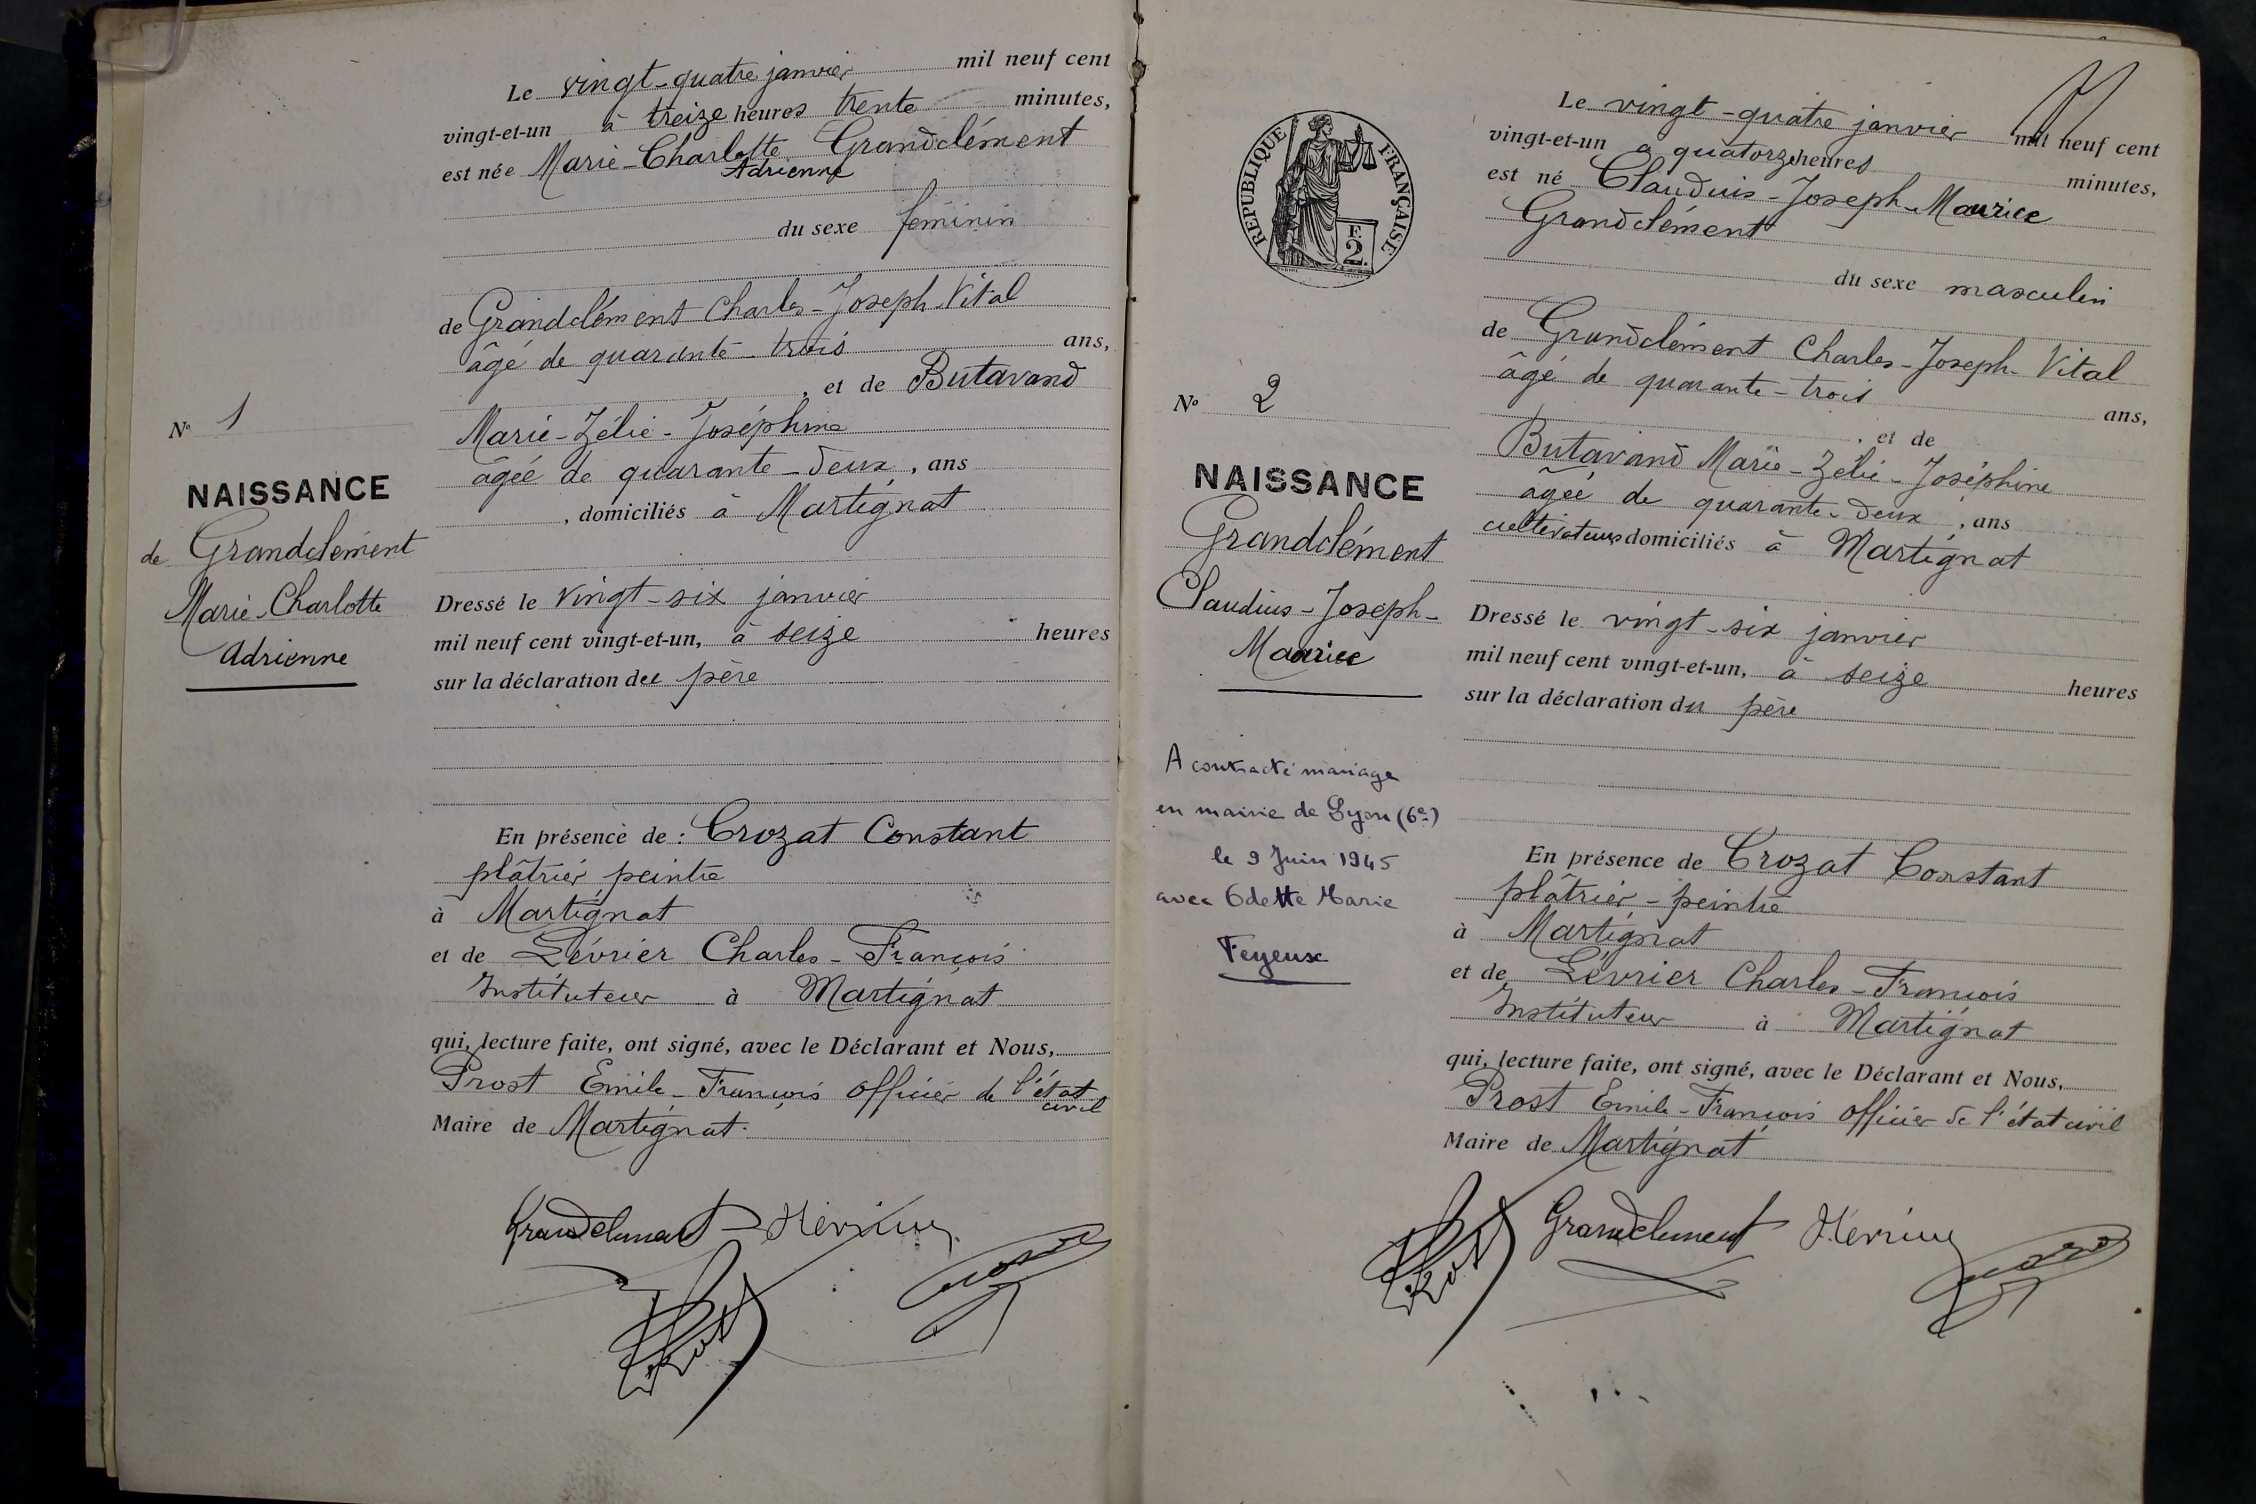 Le vingt-quatre janvier mil neuf cent
vingt-et-un à treize heures trente minutes,
est née Marie-Charlotte Grandclément
Adrienne
du sexe féminin
de Grandclément Charles-Joseph-Vital
âgé de quarante-trois ans,
, et de Butavand
Marie-Zélie-Joséphine
âgée de quarante-deux, ans
, domiciliés à Martignat
N° 1
NAISSANCE
de Grandclément
Marie-Charlotte
Adrienne
Dressé le vingt-six janvier
mil neuf cent vingt-et-un, à seize heures
sur la déclaration du père
En présence de : Crozat Constant
plâtrier peintre
à Martignat
et de Lévrier Charles-François
Instituteur à Martignat
qui, lecture faite, ont signé, avec le Déclarant et Nous,
Prost Emile-François officier de l'état
civil
Maire de Martignat.
Grandclement
Prost
RÉPUBLIQUE FRANÇAISE
F.
2.
Le vingt-quatre janvier mil neuf cent
vingt-et-un à quatorze heures minutes,
est né Claudius-Joseph-Maurice
Grandclément
du sexe masculin
de Grandclément Charles-Joseph-Vital
âgé de quarante-trois ans,
, et de
Butavand Marie-Zélie-Joséphine
âgée de quarante-deux, ans
cultivateurs domiciliés à Martignat
N° 2
NAISSANCE
Grandclément
Claudius-Joseph-
Maurice
A contracté mariage
en mairie de Lyon (6e)
le 9 Juin 1945
avec Odette Marie
Feyeux
Dressé le vingt-six janvier
mil neuf cent vingt-et-un, à seize heures
sur la déclaration du père
En présence de Crozat Constant
plâtrier-peintre
à Martignat
et de Lévrier Charles-François
Instituteur à Martignat
qui, lecture faite, ont signé, avec le Déclarant et Nous,
Prost Emile-François officier de l'état civil
Maire de Martignat
Grandclement
Prost